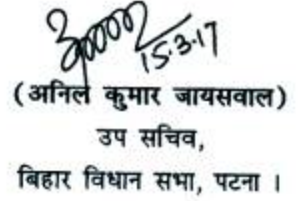 15.3.17
(अनिल कुमार जायसवाल)
उप सचिव,
बिहार विधान सभा, पटना ।